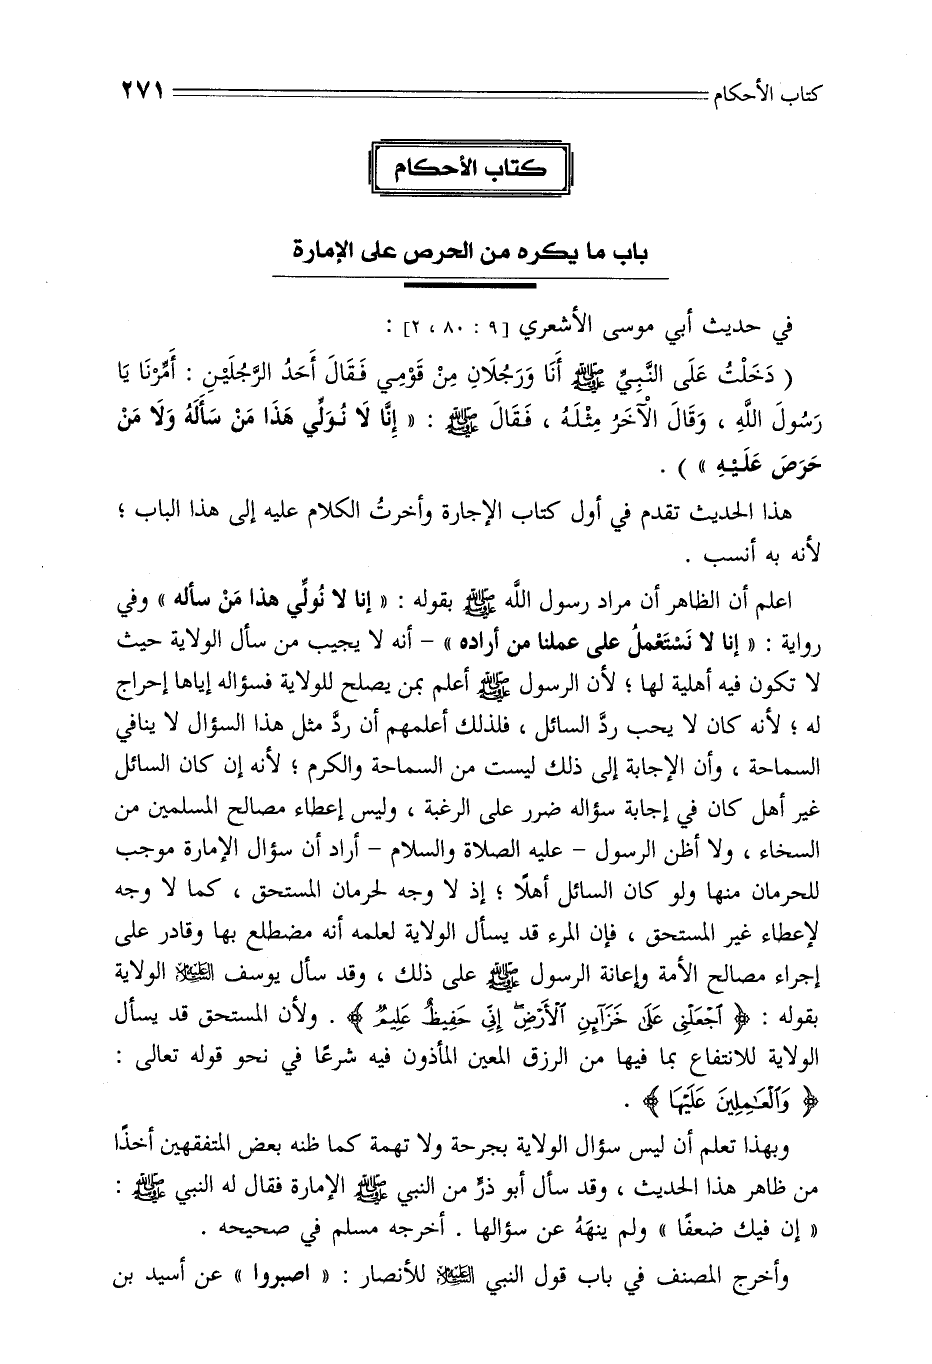 كتاب الأحكام ٢٧١
كتاب الأحكام
باب ما يكره من الحرص على الإمارة
في حديث أبي موسى الأشعري [٩ : ٨٠ ، ٢] :
( دَخَلْتُ عَلَى النَّبِيِّ ﷺ أَنَا وَرَجُلَانِ مِنْ قَوْمِي فَقَالَ أَحَدُ الرَّجُلَيْنِ : أَمِّرْنَا يَا
رَسُولَ اللهِ ، وَقَالَ الْآخَرُ مِثْلَهُ ، فَقَالَ ﷺ : « إِنَّا لَا نُوَلِّي هَذَا مَنْ سَأَلَهُ وَلَا مَنْ
حَرَصَ عَلَيْهِ » ) .
هذا الحديث تقدم في أول كتاب الإجارة وأخرتُ الكلام عليه إلى هذا الباب ؛
لأنه به أنسب .
اعلم أن الظاهر أن مراد رسول اللَّه ﷺ بقوله : « إنا لا نُولِّي هذا مَنْ سأله » وفي
رواية : « إنا لا نَسْتَعْملُ على عملنا من أراده » – أنه لا يجيب من سأل الولاية حيث
لا تكون فيه أهلية لها ؛ لأن الرسول ﷺ أعلم بمن يصلح للولاية فسؤاله إياها إحراج
له ؛ لأنه كان لا يحب ردَّ السائل ، فلذلك أعلمهم أن ردَّ مثل هذا السؤال لا ينافي
السماحة ، وأن الإجابة إلى ذلك ليست من السماحة والكرم ؛ لأنه إن كان السائل
غير أهل كان في إجابة سؤاله ضرر على الرغبة ، وليس إعطاء مصالح المسلمين من
السخاء ، ولا أظن الرسول – عليه الصلاة والسلام – أراد أن سؤال الإمارة موجب
للحرمان منها ولو كان السائل أهلًا ؛ إذ لا وجه لحرمان المستحق ، كما لا وجه
لإعطاء غير المستحق ، فإن المرء قد يسأل الولاية لعلمه أنه مضطلع بها وقادر على
إجراء مصالح الأمة وإعانة الرسول ﷺ على ذلك ، وقد سأل يوسف العليه السلام الولاية
بقوله : ﴿ ٱجْعَلْنِى عَلَىٰ خَزَآئِنِ ٱلْأَرْضِۖ إِنِّى حَفِيظٌ عَلِيمٌ ﴾ . ولأن المستحق قد يسأل
الولاية للانتفاع بما فيها من الرزق المعين المأذون فيه شرعًا في نحو قوله تعالى :
﴿ وَٱلْعَـٰمِلِينَ عَلَيْهَا ﴾ .
وبهذا تعلم أن ليس سؤال الولاية بجرحة ولا تهمة كما ظنه بعض المتفقهين أخذًا
من ظاهر هذا الحديث ، وقد سأل أبو ذرٍّ من النبي ﷺ الإمارة فقال له النبي ﷺ :
« إن فيك ضعفًا » ولم ينهَهُ عن سؤالها . أخرجه مسلم في صحيحه .
وأخرج المصنف في باب قول النبي العليه السلام للأنصار : « اصبروا » عن أسيد بن